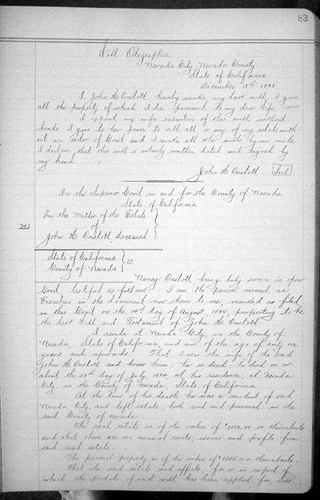 83
Will Olographic
Nevada City, Nevada County
State of California
December 18th
I, John H. Custott hereby make my last will, I give
all the property of which I die possessed to my dear wife
I appoint my wife executrix of this will without
bonds, I give to her power to sell all or any of my estate with
out an order of Court and I revoke all other wills by me made.
I declare that this will is entirely written dated and signed by
my hand.
John H. Custott Seal
In the Superior Court in and for the County of Nevada
State of California
In the Matter of the Estate
of
John H. Custott, Deceased
State of California
County of Nevada ss
Nancy Custott being duly sworn in open
Court, testified as follows: I am the person named as
Executrix in the document now shown to me, marked as filed
in this Court on the day of August purporting to be
the last Will and Testament of John H. Custott
I reside at Nevada City, in the County of
Nevada, State of California, and am of the age of
years and upwards. That I was the wife of the said
John H. Custott and knew him, he is dead, he died on or
about the day of July at his residence, at Nevada
City in the County of Nevada State of California
At the time of his death he was a resident of said
Nevada City, and left estate both real and personal in the
said County of Nevada.
The real estate is of the value of or thereabouts
and that there are no annual rents, issues and profits from
said real estate.
The personal property is of the value of or thereabouts.
That the said estate and effects, for or in respect of
which the probate of said will has been applied for, does